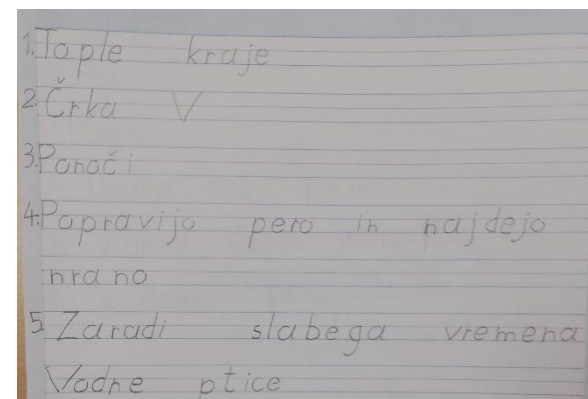 1. Tople kraje
2. Črka V
3. Ponoči
4. Popravijo pero in najdejo
hrano
5. Zaradi slabega vremena
Vodne ptice